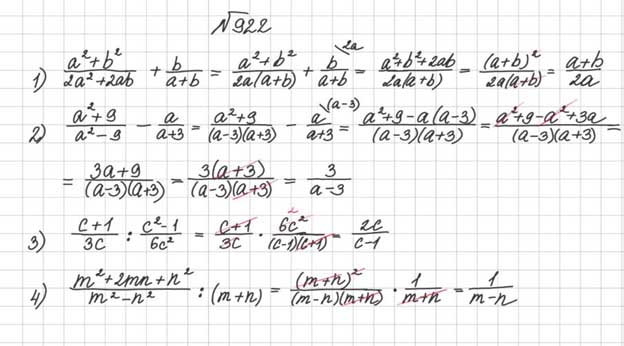 №922
1) \frac{a²+b²}{2a²+2ab} + \frac{b}{a+b} = \frac{a²+b²}{2a(a+b)} + \frac{b}{a+b}^{\2a} = \frac{a²+b²+2ab}{2a(a+b)} = \frac{(a+b)²}{2a(a+b)} = \frac{a+b}{2a}
2) \frac{a²+9}{a²-9} - \frac{a}{a+3} = \frac{a²+9}{(a-3)(a+3)} - \frac{a}{a+3}^{\(a-3)} = \frac{a²+9-a(a-3)}{(a-3)(a+3)} = \frac{a²+9-a²+3a}{(a-3)(a+3)} =
= \frac{3a+9}{(a-3)(a+3)} = \frac{3(a+3)}{(a-3)(a+3)} = \frac{3}{a-3}
3) \frac{c+1}{3c} : \frac{c²-1}{6c²} = \frac{c+1}{3c} · \frac{6c²}{(c-1)(c+1)} = \frac{2c}{c-1}
4) \frac{m²+2mn+n²}{m²-n²} : (m+n) = \frac{(m+n)²}{(m-n)(m+n)} · \frac{1}{m+n} = \frac{1}{m-n}